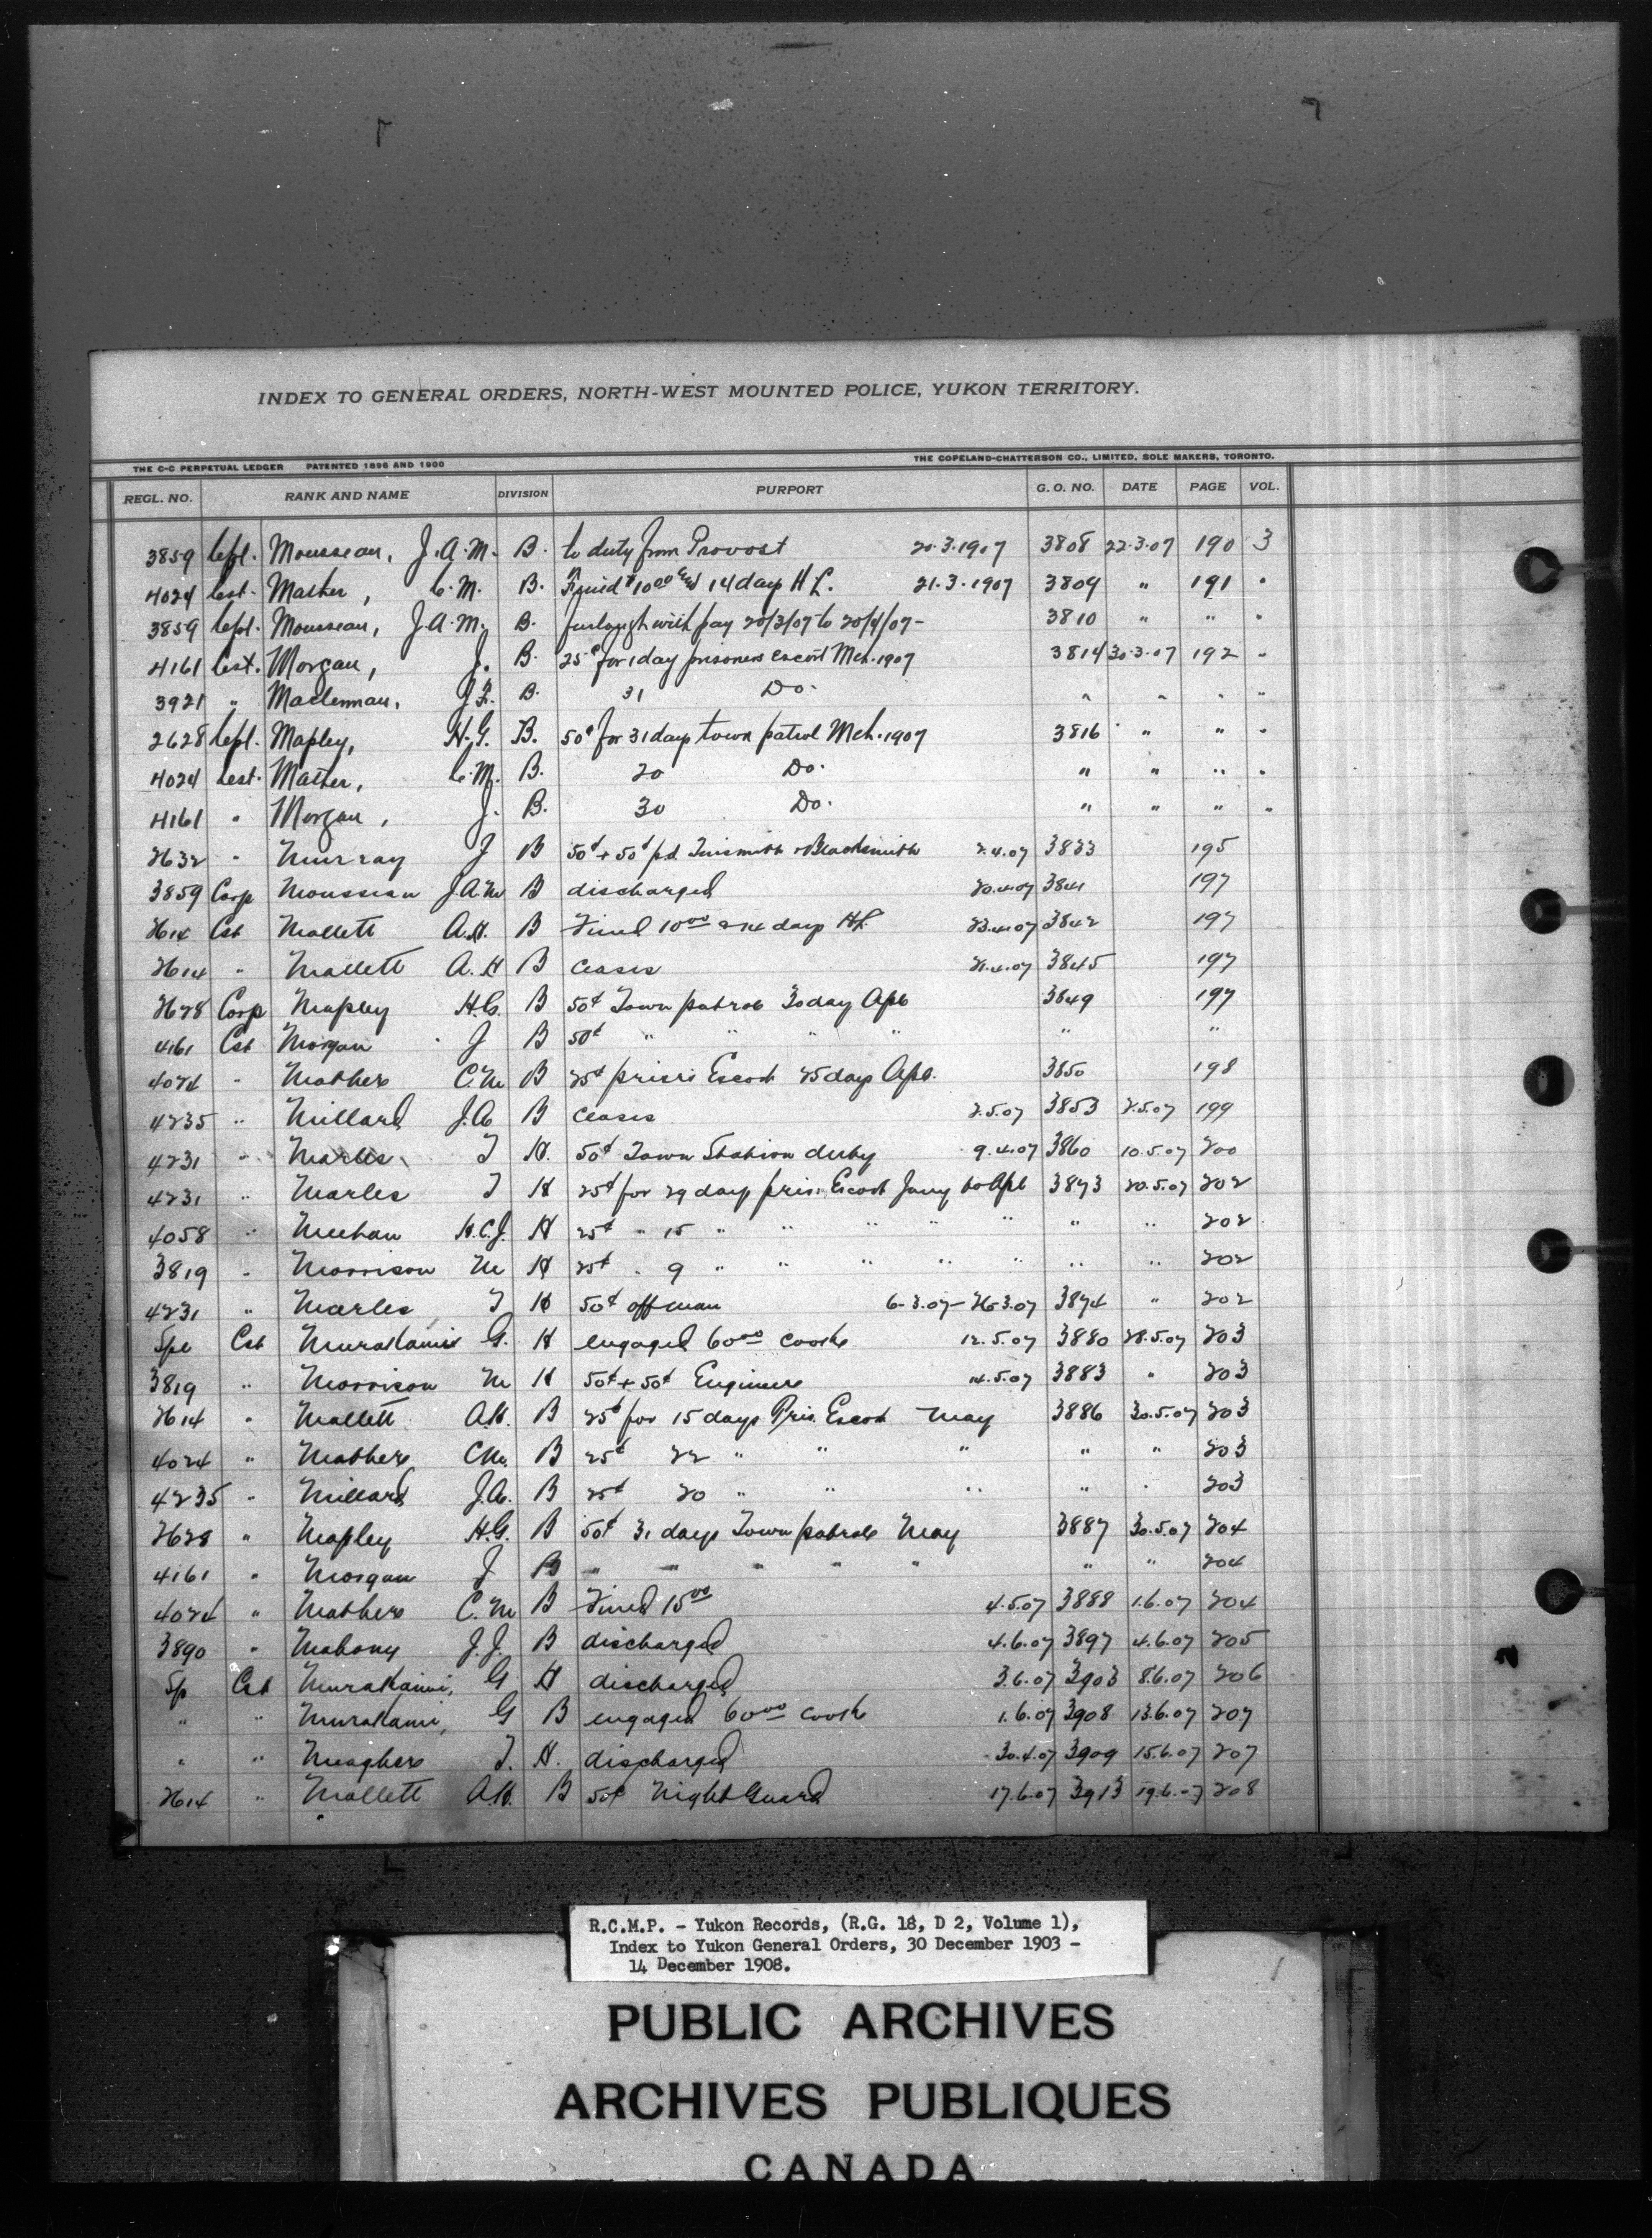 INDEX TO GENERAL ORDERS, NORTH-WEST MOUNTED POLICE, YUKON TERRITORY.
THE C-C PERPETUAL LEDGER PATENTED 1896 AND 1900 THE COPELAND-CHATTERSON CO., LIMITED, SOLE MAKERS, TORONTO.
REGL. NO. RANK AND NAME DIVISION PURPORT G. O. NO. DATE PAGE VOL.
3859 Cpl. Mousseau, J.A.M. B. to duty from Provost 20.3.1907 3808 22.3.07 190 3
4024 Cst. Mather, C.M. B. Fined $10.00 and 14 days H L. 21.3.1907 3809 " 191 "
3859 Cpl. Mousseau, J.A.M. B. furlough with pay 20/3/07 to 20/4/07 - 3810 " " "
4161 Cst. Morgan, J. B. 25¢ for 1 day prisoners escort Mch. 1907 3814 30.3.07 192 "
3921 " Maclennan, J.F. B. 31 Do. " " " "
2628 Cpl. Mapley, H.G. B. 50¢ for 31 days town patrol Mch. 1907 3816 " " "
4024 Cst. Mather, C.M. B. 20 Do. " " " "
4161 " Morgan, J. B. 30 Do. " " " "
2632 " Murray J B 50¢ + 50¢ p.d. Tinsmith + Blacksmith 2.4.07 3833 195
3859 Corp Mousseau J.A.M B discharged 20.4.07 3841 197
2614 Cst Mallett A.H. B Fined 10.00 & 14 days HL 23.4.07 3842 197
2614 " Mallett A.H B Ceases 21.4.07 3845 197
2628 Corp Mapley H.G. B 50¢ Town patrol 30 day Apl 3849 197
4161 Cst Morgan J B 50¢ " " " " " "
4024 " Mathers C.M B 25¢ prisrs Escort 25 days Apl. 3850 198
4235 " Millard J.A B Ceases 2.5.07 3853 2.5.07 199
4231 " Marles T H. 50¢ Town Station duty 9.4.07 3860 10.5.07 200
4231 " Marles T H 25¢ for 29 days pris. Escort Jany to Apl 3873 20.5.07 202
4058 " Meehan H.C.J. H 25¢ " 15 " " " " " " " 202
3819 " Morrison M H 25¢ " 9 " " " " " " " 202
4231 " Marles T H 50¢ off man 6-3.07 - 26.3.07 3874 " 202
Spe Cst Murakami G. H engaged 60.00 cook 12.5.07 3880 28.5.07 203
3819 " Morrison M H 50¢ + 50¢ Engineer 14.5.07 3883 " 203
2614 " Mallett A.H. B 25¢ for 15 days Pris. Escort May 3886 30.5.07 203
4024 " Mathers C.M. B 25¢ 22 " " " " " 203
4235 " Millard J.A. B 25¢ 20 " " " " " 203
2628 " Mapley H.G. B 50¢ 31 days Town patrol May 3887 30.5.07 204
4161 " Morgan J B " " " " " " " 204
4024 " Mathers C.M B Fined 15.00 4.5.07 3888 1.6.07 204
3890 " Mahony J.J. B discharged 4.6.07 3897 4.6.07 205
Sp Cst Murakami, G H discharged 3.6.07 3903 8.6.07 206
" " Murakami, G B engaged 60.00 cook 1.6.07 3908 13.6.07 207
" " Meaghers T. H. discharged 30.4.07 3909 15.6.07 207
2614 " Mallett A.H. B 50¢ Night Guard 17.6.07 3913 19.6.07 208
R.C.M.P. - Yukon Records, (R.G. 18, D 2, Volume 1),
Index to Yukon General Orders, 30 December 1903 -
14 December 1908.
PUBLIC ARCHIVES
ARCHIVES PUBLIQUES
CANADA